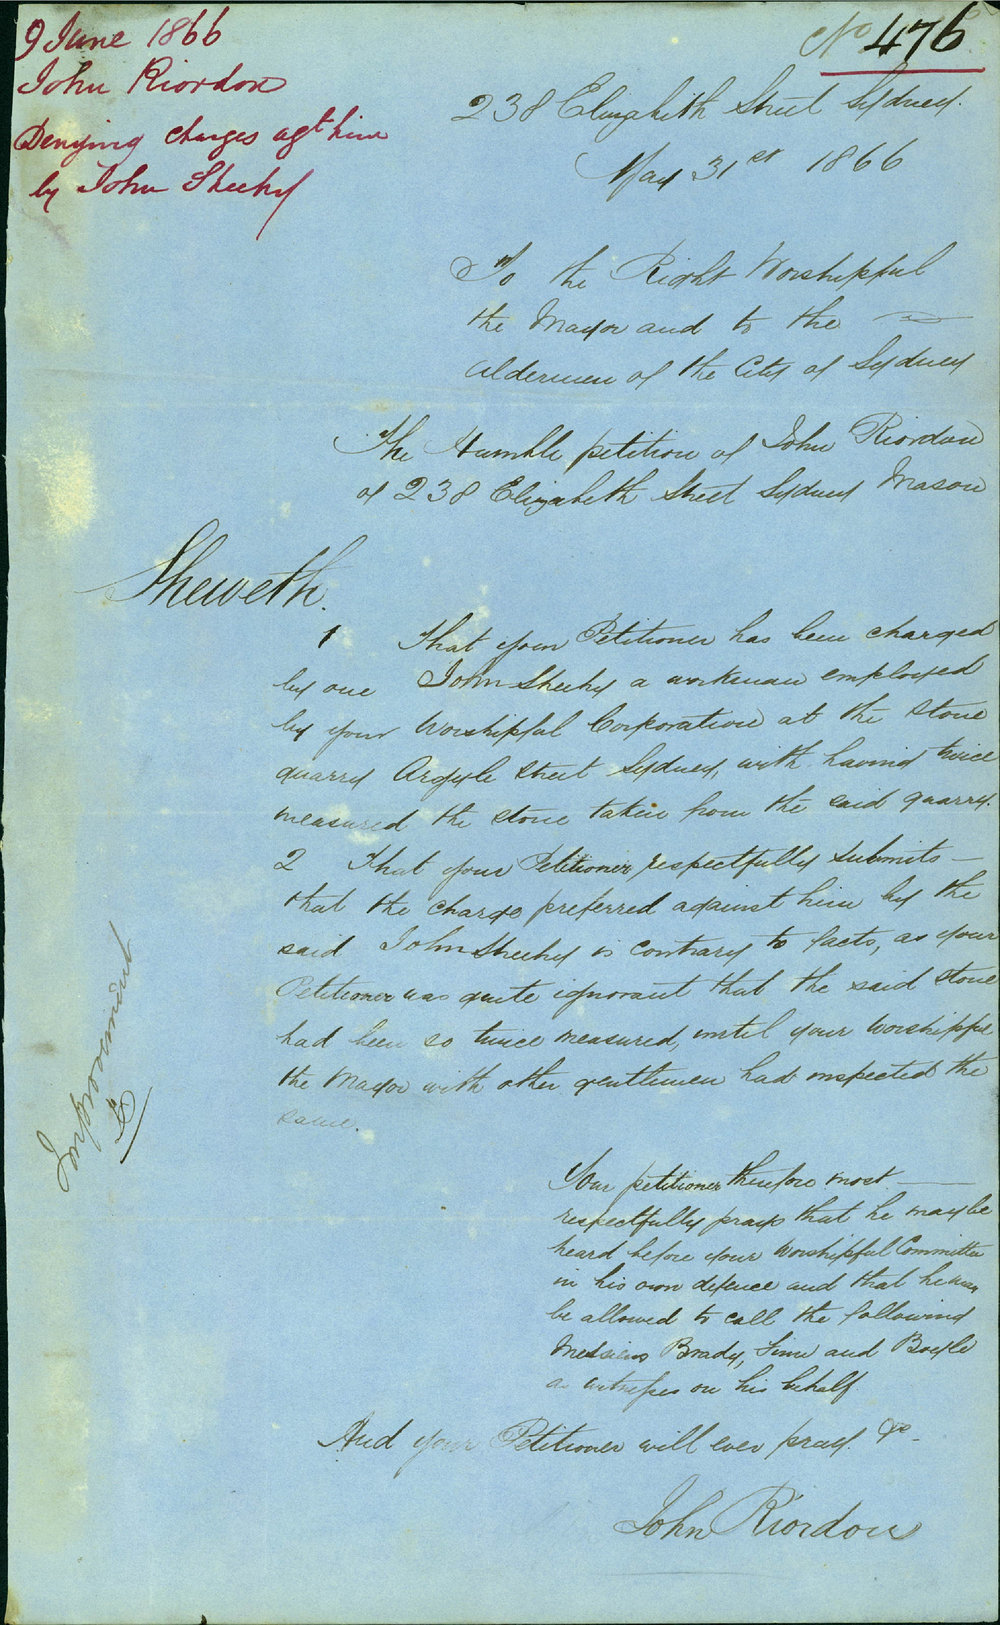 9 June 1866
John Riordon
Denying charges agt him
by John Sheehy
No 476
238 Elizabeth Street Sydney.
May 31st 1866
To the Right Worshipful
the Mayor and to the
Aldermen of the City of Sydney
The Humble petition of John Riordon
of 238 Elizabeth Street Sydney Mason
Sheweth.
1 That your Petitioner has been charged
by one John Sheehy a workman employed
by your Worshipful Corporation at the Stone
quarry Argyle Street Sydney, with having twice
measured the stone taken from the said quarry.
2 That your Petitioner respectfully submits —
that the charge preferred against him by the
said John Sheehy is contrary to facts, as your
Petitioner was quite ignorant that the said stone
had been so twice measured, until your Worshipful
the Mayor with other gentlemen had inspected the
same.
Improvement
Your petitioner therefore most —
respectfully prays that he may be
heard before your Worshipful Committee
in his own defence and that he may
be allowed to call the following
Messieurs Brady, and Boyle
as witnesses on his behalf.
And your Petitioner will ever pray. &c.
John Riordon